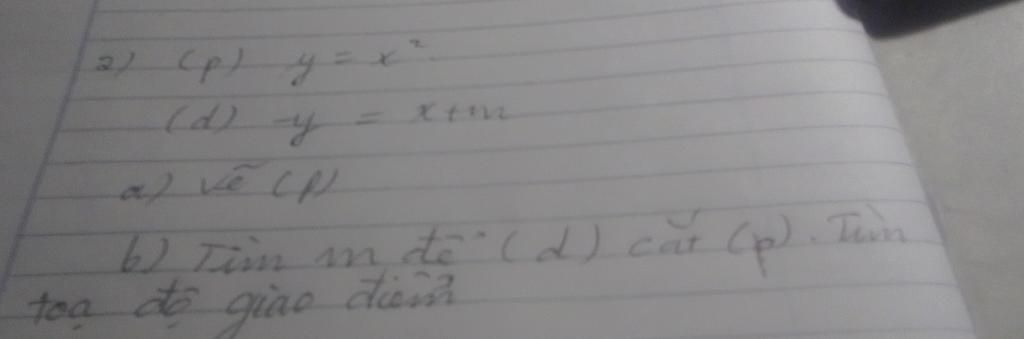 2) (p) y = x².
(d) -y = x+m
a) vẽ (P)
b) Tìm m để (d) cắt (p). Tìm
toạ độ giao điểm